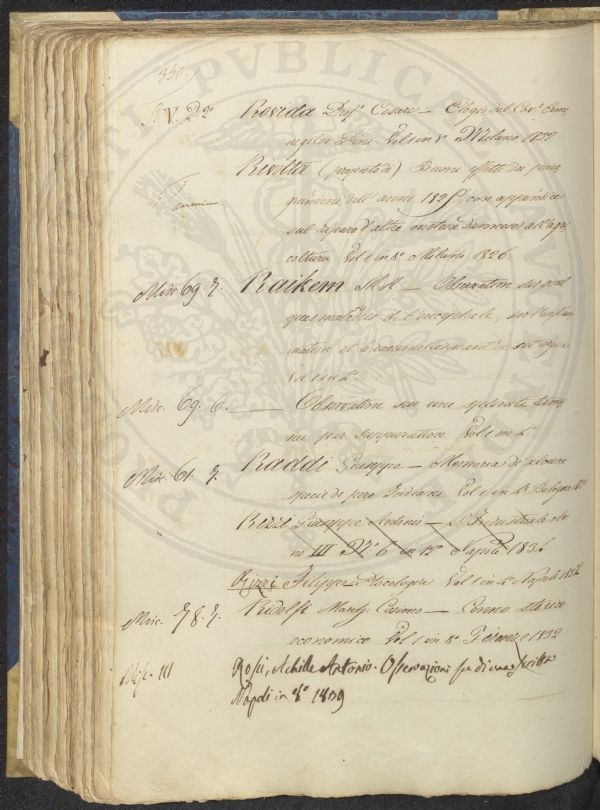 330.
Rovida Prof.e Cesare — Elogio del Cav.e Erme
negildo Pini Vol 1 in 8° Milano 1832
Rivolta (proposto di) Buoni effetti dei para
grandini dell'anno 1825 con appendice
sul riparo d'altre meteore dannose all'agri
coltura Vol 1 in 8° Milano 1826
Misc 69. 7. Raikem M. A — Observation sur quel
ques maladies de l'encephale, sur l'inflam
mation et le
Vol 1 in 8°
Misc. 69. 6. — Observation sur une splenite termi
née par suppuration Vol 1 in 8°
Misc. 61. 7. Raddi Giuseppe — Memoria di alcune
specie di pero Indiano Vol 1 in 4° Bologna
Rizzi Giuseppe Antonio — L'Industriale An
no III N.° 6 in 12° Napoli 1834
Rizzi Filippo — Tocologia Vol 1 in 8° Napoli 1834
Misc. 78. 7. Ridolfi March. Cosimo — Cenno storico
economico Vol 1 in 8° Firenze 1832
Misc. 111 Rossi, Achille Antonio. Osservazioni su di una scritta
Napoli in 8° 1839